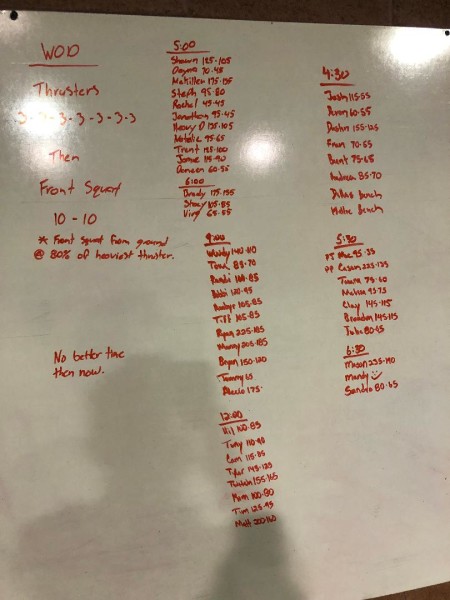 WOD
Thrusters
3-3-3-3-3-3-3
Then
Front Squat
10 - 10
* Front squat from ground
@ 80% of heaviest thruster.
No better time
then now.
5:00
Shawn 125-105
Dayna 70-45
McKiller 175-135
Steph 95-80
Rachel 45-45
Jonathan 95-45
Heavy D 135-105
Natalie 95-65
Trent 125-100
Jamie 115-90
Doreen 60-55
6:00
Brady 175-155
Stacy 105-85
Viny 65-55
9:00
Wendy 140-110
Tom 85-70
100-85
Bobbi 120-95
105-85
Tiff 105-85
Ryan 225-185
Murray 205-185
Bryan 150-120
Tammy 65
Alexio 175-
12:00
Hil 100-85
Tony 110-90
Cam 115-85
Tyler 145-125
155-105
100-80
Tim 125-95
Matt 200-160
4:30
Josh 115-55
60-55
155-125
Fran 70-55
Brent 75-65
Andrea 85-70
Dillas Bench
Hollie Bench
5:30
PJ Mac 95-35
PP Casen 225-135
Tiana 75-60
Melissa 95-75
Clay 145-115
Brandon 145-115
Julie 80-65
6:30
Mason 235-190
Mandy
Sandra 80-65